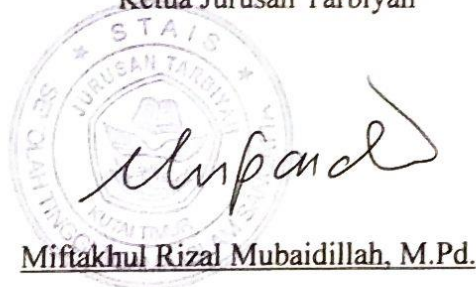 Ketua Jurusan Tarbiyah
STAIS
JURUSAN TARBIYAH
KUTAI TIMUR
Miftakhul Rizal Mubaidillah, M.Pd.